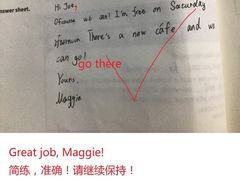 nswer sheet.
Hi Joe,
we are! I'm free on Saturday
afternoon There's a new cáfe and we
can go!
go there
Yours,
Maggie
Great job, Maggie!
简练，准确！请继续保持！